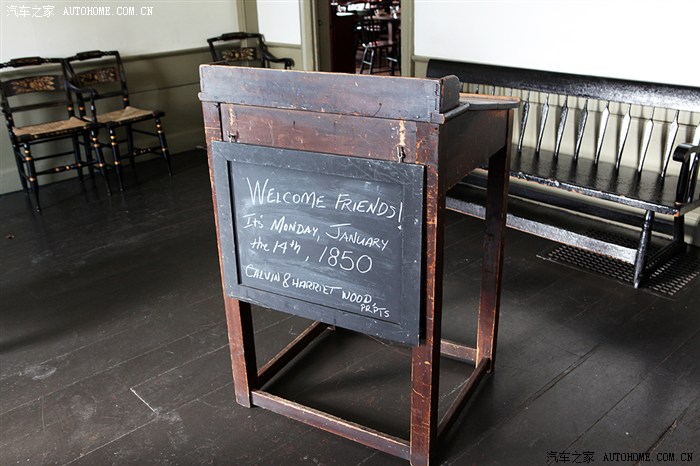 汽车之家 AUTOHOME.COM.CN
WELCOME FRIENDS!
IT'S MONDAY, JANUARY
the 14th, 1850
CALVIN & HARRIET WOOD
PR'PTS
汽车之家 AUTOHOME.COM.CN